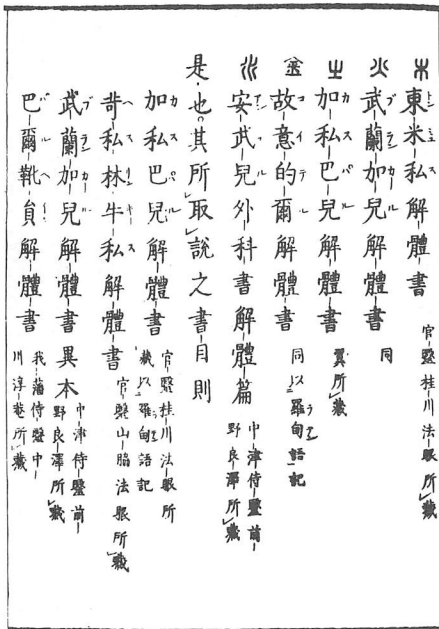 木 東米私解體書 官醫桂川法眼所藏
火 武蘭加兒解體書 同
土 加私巴兒解體書 翼所藏
金 故意的爾解體書 同以羅甸語記
水 安武兒外科書解體篇 中津侍醫前野良澤所藏
是也。其所取說之書目則
加私巴兒解體書 官醫桂川法眼所藏以羅甸語記
苛私林牛私解體書 官醫山脇法眼所藏
武蘭加兒解體書異本 中津侍醫前野良澤所藏
巴爾靴員解體書 我藩侍醫中川淳菴所藏